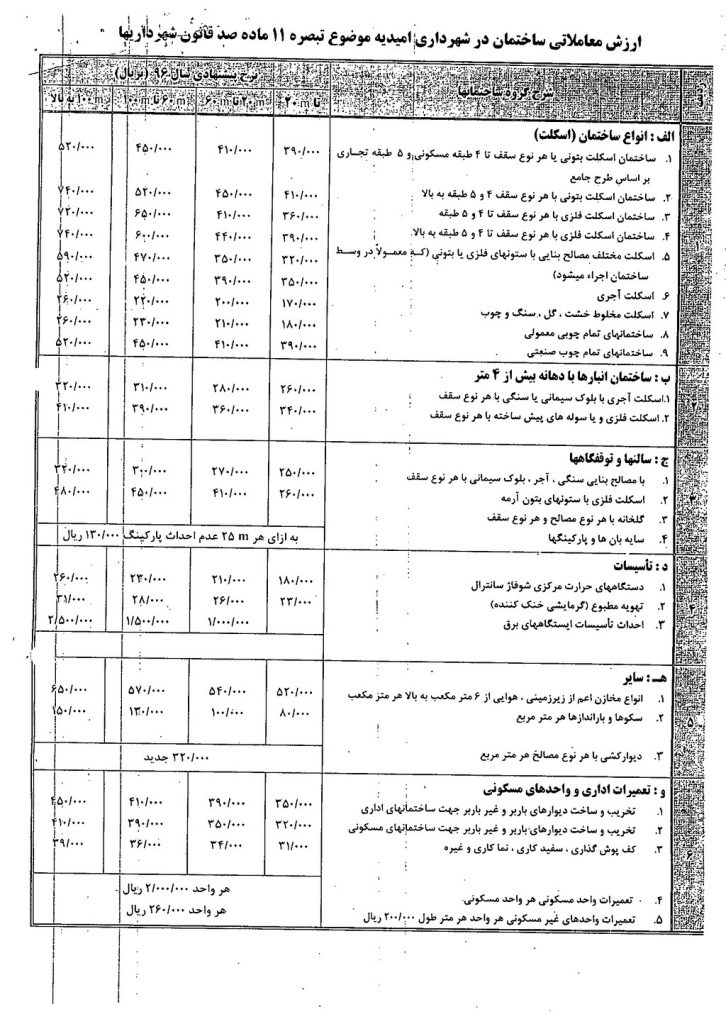 ارزش معاملاتی ساختمان در شهرداری امیدیه موضوع تبصره ۱۱ ماده صد قانون شهرداریها
شرح گروه ساختمانها
نرخ پیشنهادی سال ۹۶ (بریال)
تا ۲۰ m ۲۰ m تا ۶۰ ۶۰ m تا ۱۰۰ ۱۰۰ m به بالا
الف : انواع ساختمان (اسکلت)
۱. ساختمان اسکلت بتونی با هر نوع سقف تا ۴ طبقه مسکونی و ۵ طبقه تجاری ۳۹۰/۰۰۰ ۴۱۰/۰۰۰ ۴۵۰/۰۰۰ ۵۲۰/۰۰۰
بر اساس طرح جامع
۲. ساختمان اسکلت بتونی با هر نوع سقف ۴ و ۵ طبقه به بالا ۴۱۰/۰۰۰ ۴۵۰/۰۰۰ ۵۲۰/۰۰۰ ۷۴۰/۰۰۰
۳. ساختمان اسکلت فلزی با هر نوع سقف تا ۴ و ۵ طبقه ۳۶۰/۰۰۰ ۴۱۰/۰۰۰ ۶۵۰/۰۰۰ ۷۲۰/۰۰۰
۴. ساختمان اسکلت فلزی با هر نوع سقف تا ۴ و ۵ طبقه به بالا ۳۹۰/۰۰۰ ۴۴۰/۰۰۰ ۶۰۰/۰۰۰ ۷۴۰/۰۰۰
۵. اسکلت مختلف مصالح بنایی با ستونهای فلزی یا بتونی (که معمولاً در وسط ۳۲۰/۰۰۰ ۳۵۰/۰۰۰ ۴۷۰/۰۰۰ ۵۹۰/۰۰۰
ساختمان اجراء میشود) ۳۵۰/۰۰۰ ۳۹۰/۰۰۰ ۴۵۰/۰۰۰ ۵۲۰/۰۰۰
۶. اسکلت آجری ۱۷۰/۰۰۰ ۲۰۰/۰۰۰ ۲۲۰/۰۰۰ ۲۶۰/۰۰۰
۷. اسکلت مخلوط خشت ، گل ، سنگ و چوب ۱۸۰/۰۰۰ ۲۱۰/۰۰۰ ۲۳۰/۰۰۰ ۲۶۰/۰۰۰
۸. ساختمانهای تمام چوبی معمولی ۳۹۰/۰۰۰ ۴۱۰/۰۰۰ ۴۵۰/۰۰۰ ۵۲۰/۰۰۰
۹. ساختمانهای تمام چوب صنعتی
ب : ساختمان انبارها با دهانه بیش از ۴ متر
۱. اسکلت آجری با بلوک سیمانی یا سنگی با هر نوع سقف ۲۶۰/۰۰۰ ۲۸۰/۰۰۰ ۳۱۰/۰۰۰ ۳۲۰/۰۰۰
۲. اسکلت فلزی و یا سوله های پیش ساخته با هر نوع سقف ۳۴۰/۰۰۰ ۳۶۰/۰۰۰ ۳۹۰/۰۰۰ ۴۱۰/۰۰۰
۲
ج : سالنها و توقفگاهها
۱. با مصالح بنایی سنگی ، آجر ، بلوک سیمانی با هر نوع سقف ۲۵۰/۰۰۰ ۲۷۰/۰۰۰ ۳۰۰/۰۰۰ ۳۲۰/۰۰۰
۲. اسکلت فلزی با ستونهای بتون آرمه ۲۶۰/۰۰۰ ۴۱۰/۰۰۰ ۴۵۰/۰۰۰ ۴۸۰/۰۰۰
۳. گلخانه با هر نوع مصالح و هر نوع سقف
۴. سایه بان ها و پارکینگها به ازای هر ۲۵ m عدم احداث پارکینگ ۱۳۰/۰۰۰ ریال
د : تأسیسات
۱. دستگاههای حرارت مرکزی شوفاژ سانترال ۱۸۰/۰۰۰ ۲۱۰/۰۰۰ ۲۳۰/۰۰۰ ۲۶۰/۰۰۰
۲. تهویه مطبوع (گرمایشی خنک کننده) ۲۳/۰۰۰ ۲۶/۰۰۰ ۲۸/۰۰۰ ۳۱/۰۰۰
۳. احداث تأسیسات ایستگاههای برق ۱/۰۰۰/۰۰۰ ۱/۵۰۰/۰۰۰ ۲/۵۰۰/۰۰۰
۴
هـ : سایر
۱. انواع مخازن اعم از زیرزمینی ، هوایی از ۶ متر مکعب به بالا هر متر مکعب ۵۲۰/۰۰۰ ۵۴۰/۰۰۰ ۵۷۰/۰۰۰ ۶۵۰/۰۰۰
۲. سکوها و باراندازها هر متر مربع ۸۰/۰۰۰ ۱۰۰/۰۰۰ ۱۳۰/۰۰۰ ۱۵۰/۰۰۰
۵
۳. دیوارکشی با هر نوع مصالح هر متر مربع ۳۲۰/۰۰۰ جدید
و : تعمیرات اداری و واحدهای مسکونی
۱. تخریب و ساخت دیوارهای باربر و غیر باربر جهت ساختمانهای اداری ۳۵۰/۰۰۰ ۳۹۰/۰۰۰ ۴۱۰/۰۰۰ ۴۵۰/۰۰۰
۲. تخریب و ساخت دیوارهای باربر و غیر باربر جهت ساختمانهای مسکونی ۳۲۰/۰۰۰ ۳۵۰/۰۰۰ ۳۹۰/۰۰۰ ۴۱۰/۰۰۰
۳. کف پوش گذاری ، سفید کاری ، نما کاری و غیره ۳۱/۰۰۰ ۳۴/۰۰۰ ۳۶/۰۰۰ ۳۹/۰۰۰
۶
۴. تعمیرات واحد مسکونی هر واحد مسکونی هر واحد ۲/۰۰۰/۰۰۰ ریال
۵. تعمیرات واحدهای غیر مسکونی هر واحد هر متر طول ۲۰۰/۰۰۰ ریال هر واحد ۲۶۰/۰۰۰ ریال